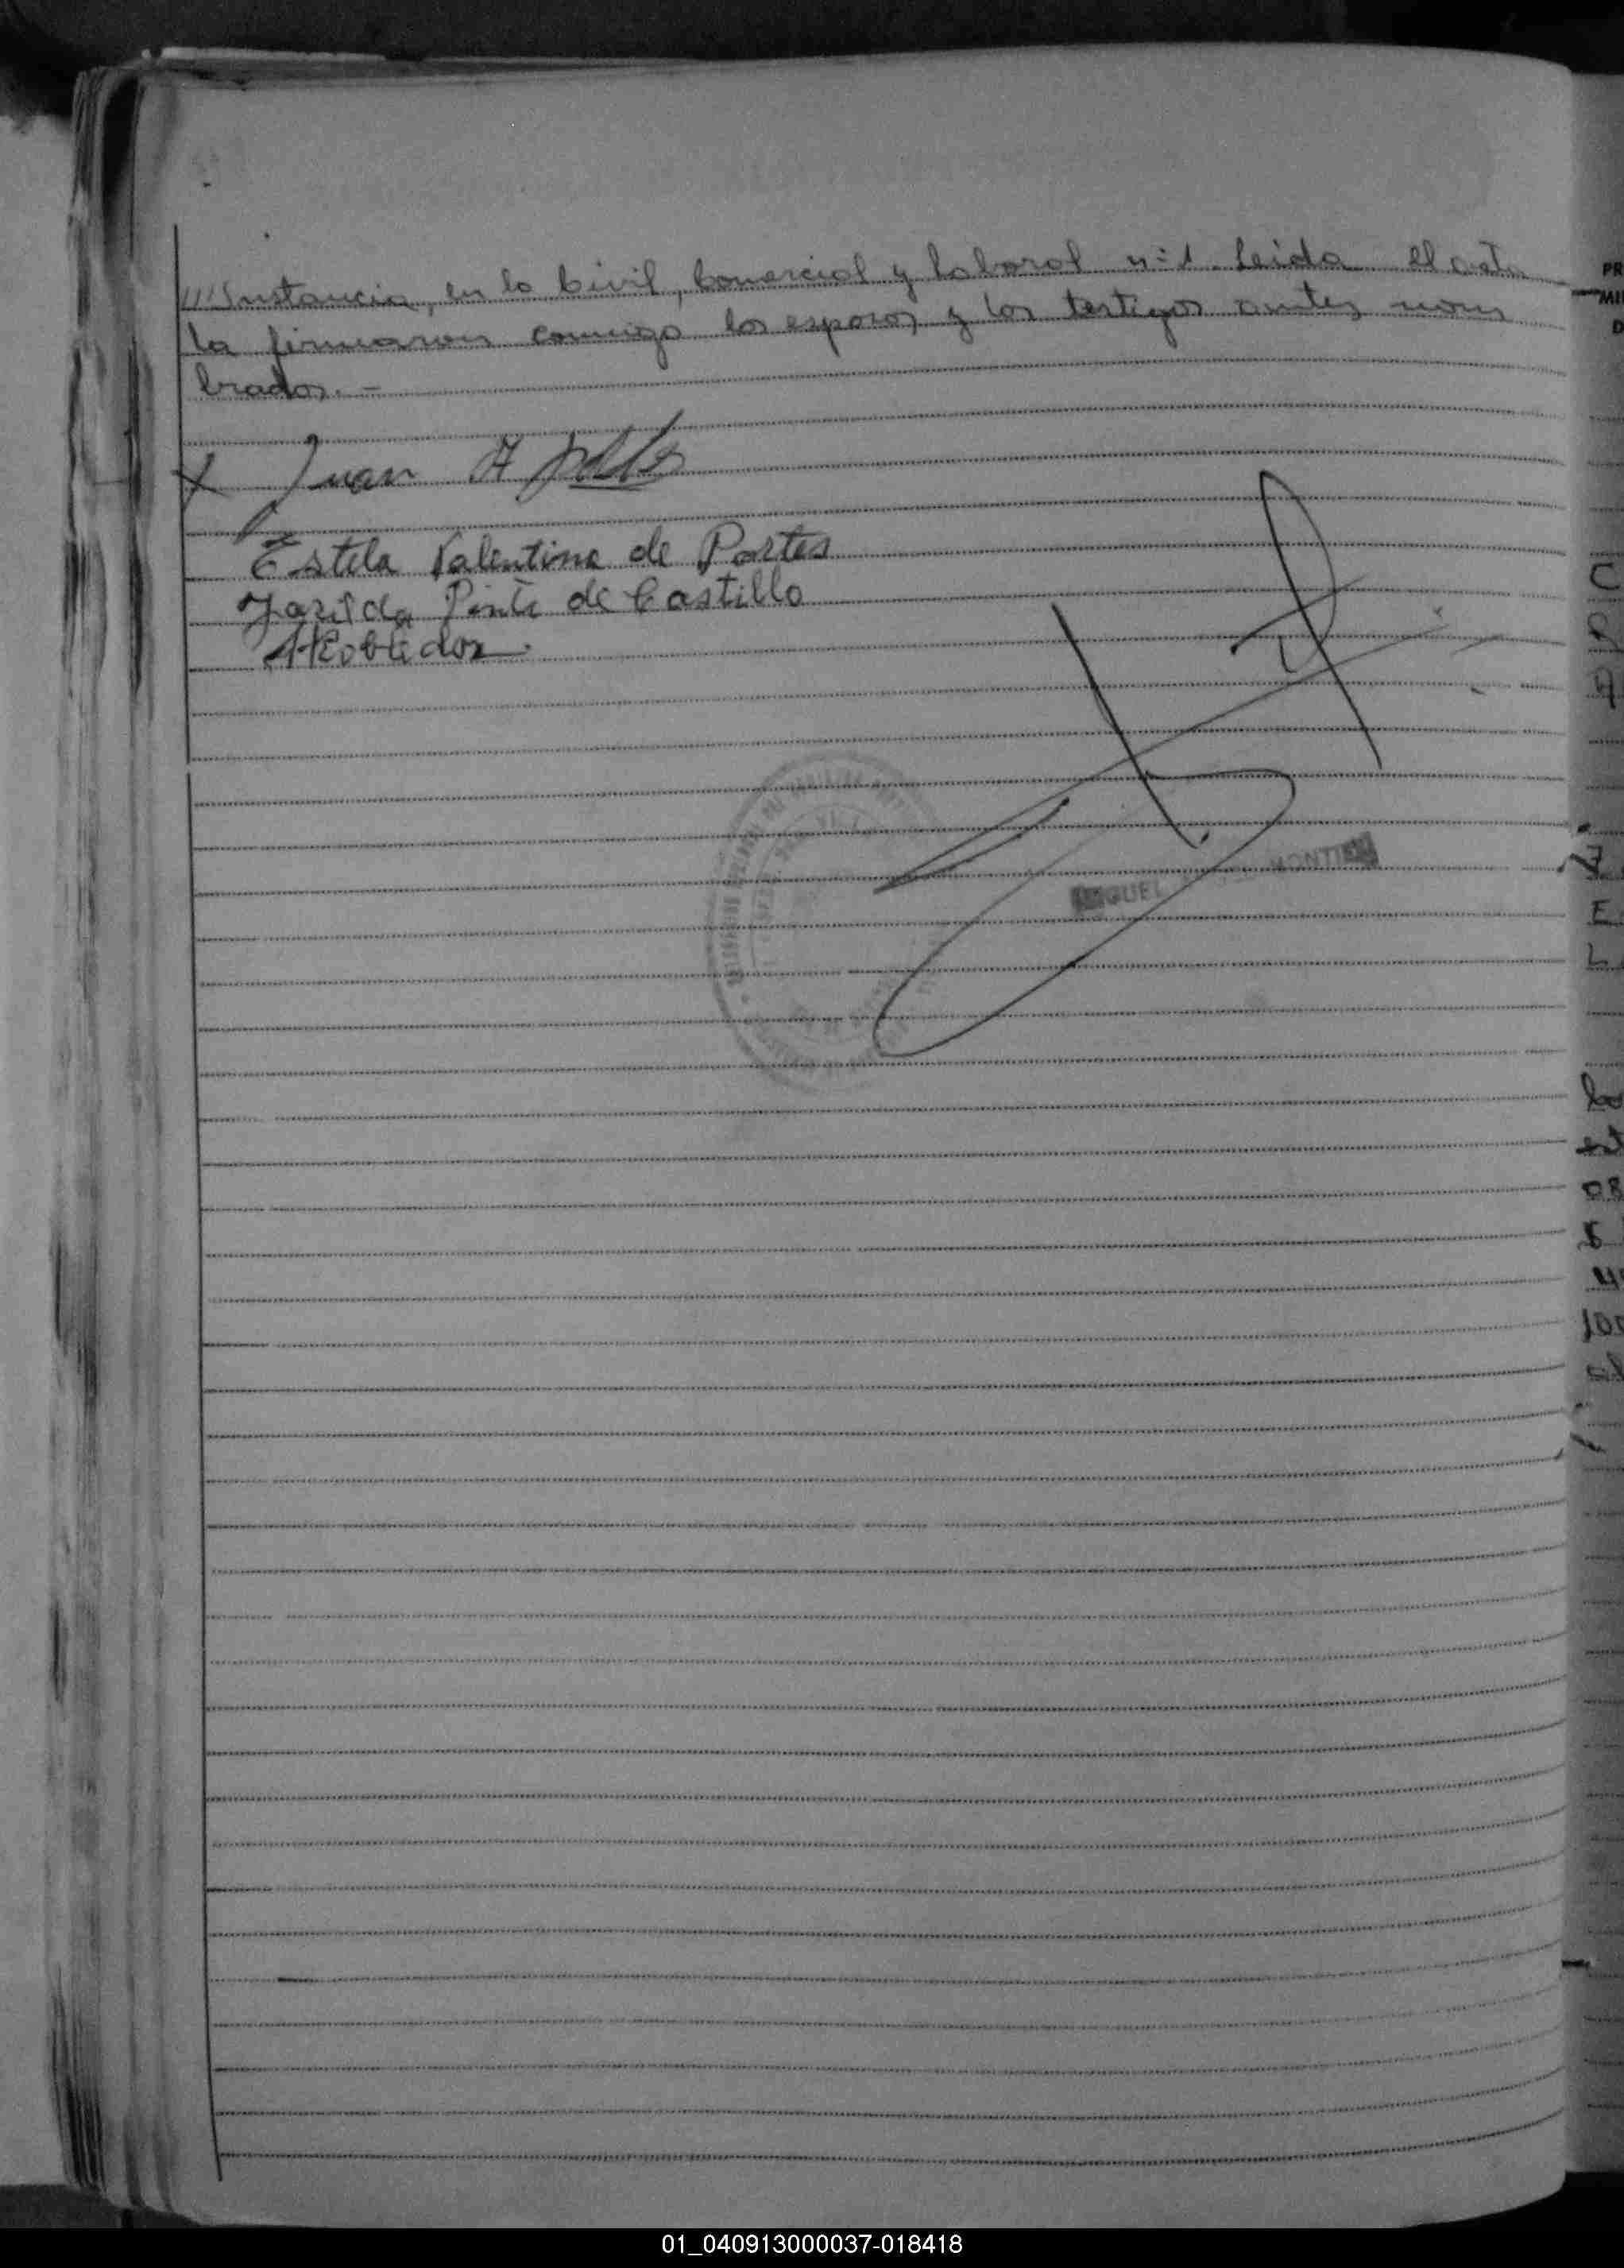 ///Instancia, en lo Civil, Comercial y Laboral nº 1. Leida el acta
la firmaron conmigo los esposos y los testigos antes nom
brados.-
X Juan A
Estela Valentina de Portes
Farida Pinte de Castillo
ARobledor
MIGUEL MONTIEL
01_040913000037-018418